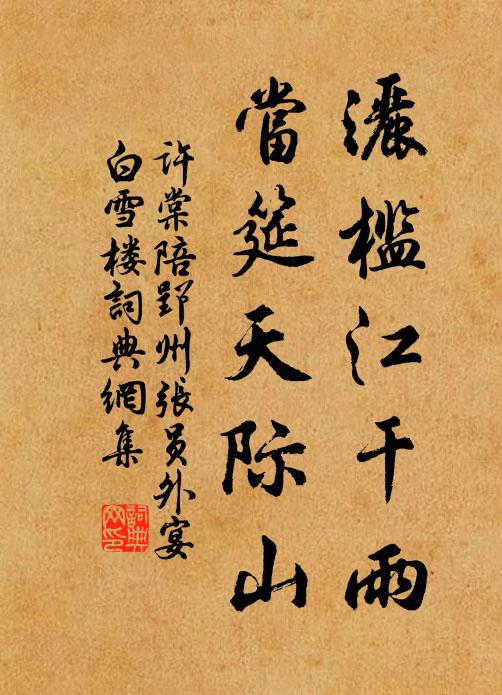 灑檻江干雨
當筵天际山
许棠陪郢州張员外宴
白雪楼詞典網集
詞典网印